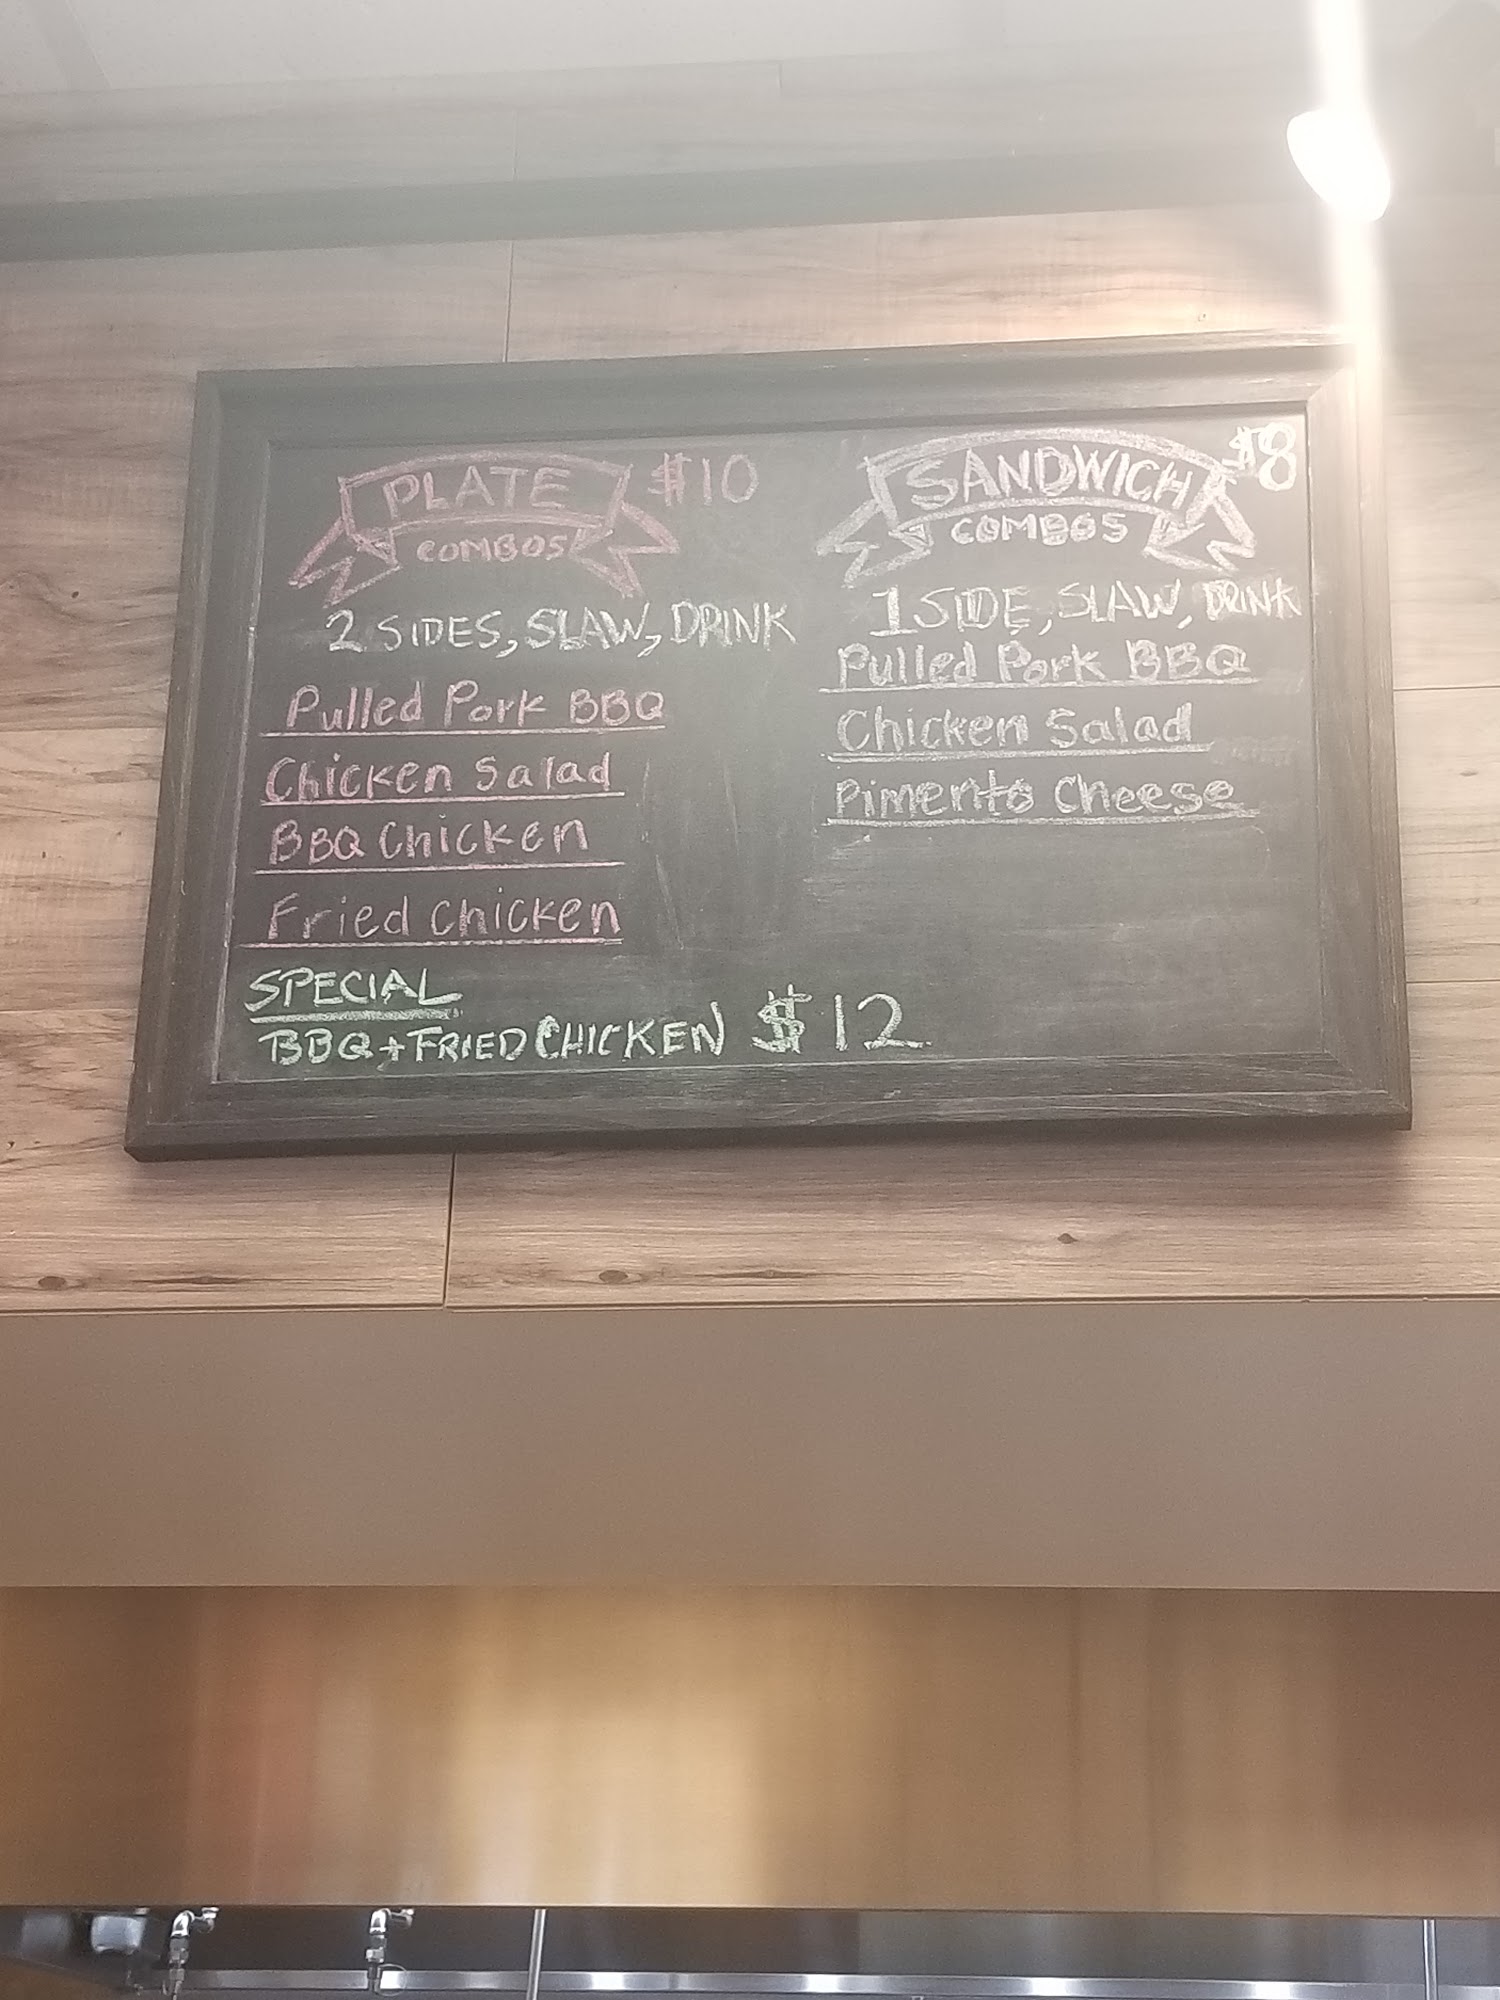 PLATE $10
COMBOS
2 SIDES, SLAW, DRINK
Pulled Pork BBQ
Chicken Salad
BBQ Chicken
Fried Chicken
SPECIAL
BBQ + FRIED CHICKEN $12
SANDWICH $8
COMBOS
1 SIDE, SLAW, DRINK
Pulled Pork BBQ
Chicken Salad
Pimento Cheese